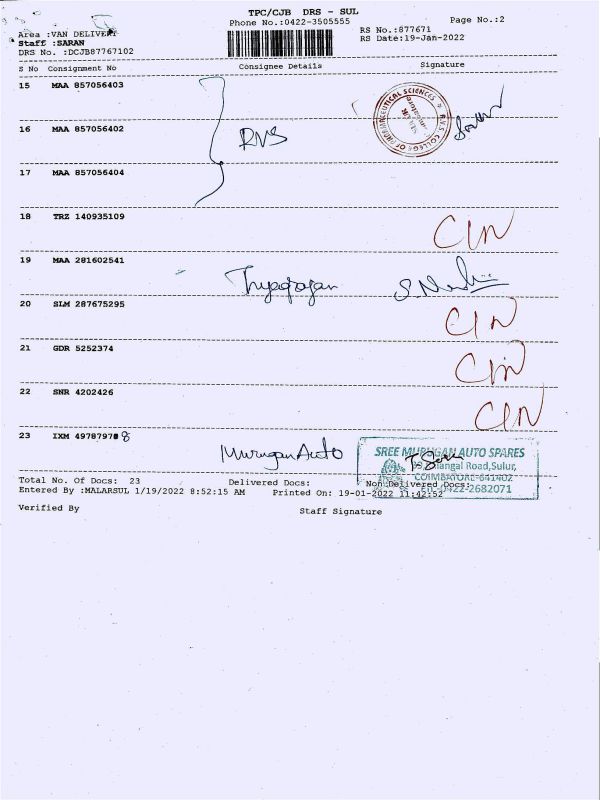 TPC/CJB DRS - SUL
Phone No.:0422-3505555
Page No.:2
Area :VAN DELIVERY
Staff :SARAN
DRS No. :DCJB87767102
RS No.:877671
RS Date:19-Jan-2022
S No Consignment No Consignee Details Signature
15 MAA 857056403
16 MAA 857056402 RVS
R.V.S. COLLEGE OF PHARMACEUTICAL SCIENCES
17 MAA 857056404
18 TRZ 140935109 CIN
19 MAA 281602541
20 SLM 287675295 CIN
21 GDR 5252374 CIN
22 SNR 4202426 CIN
23 IXM 49787978 8 Murugan Auto
SREE MURUGAN AUTO SPARES
Road, Sulur,
COIMBATORE-641402
0422-2682071
Total No. Of Docs: 23 Delivered Docs: Non Delivered Docs:
Entered By :MALARSUL 1/19/2022 8:52:15 AM Printed On: 19-01-2022 11:42:52
Verified By Staff Signature